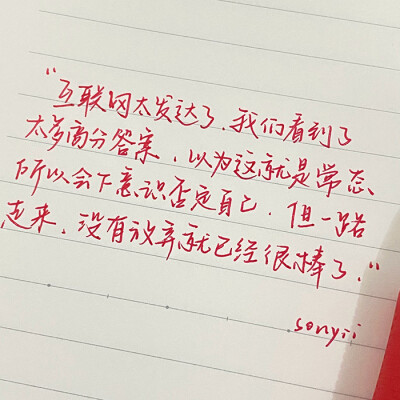 “互联网太发达了，我们看到了
太多高分答案，以为这就是常态
所以会下意识否定自己，但一路
走来，没有放弃就已经很棒了。”
sonyii